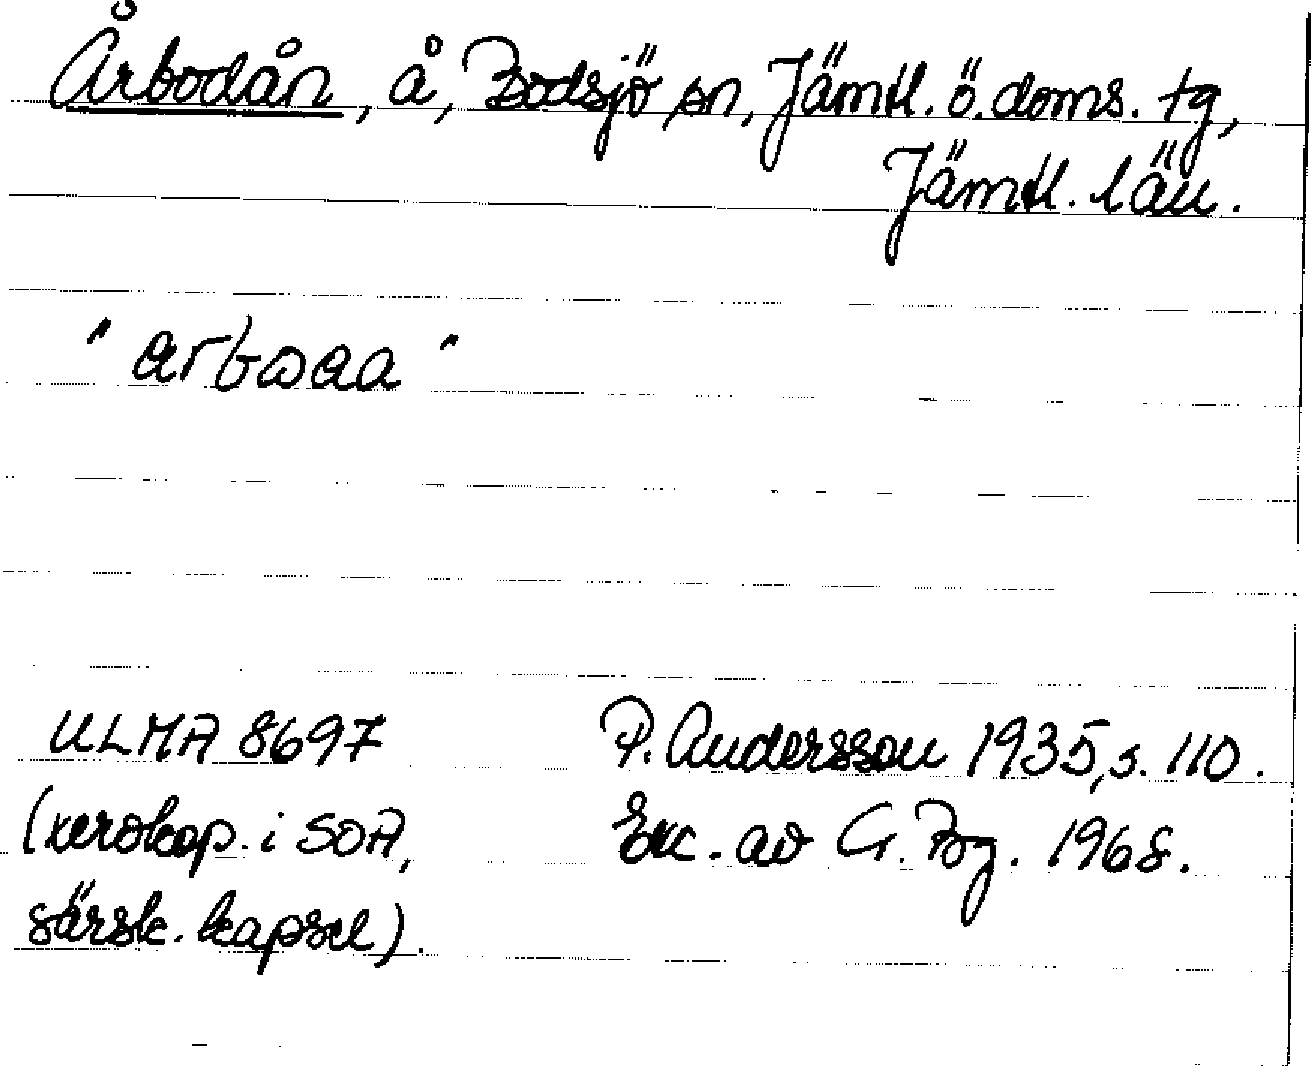 Årbodån, å, Bodsjö sn, Jämtl. ö. doms. tg,
Jämtl. län.
"arbωaa"
ULMA 8697 P. Andersson 1935, s. 110.
(xerokop. i SOA, Exc. av G. Bg. 1968.
särsk. kapsel).